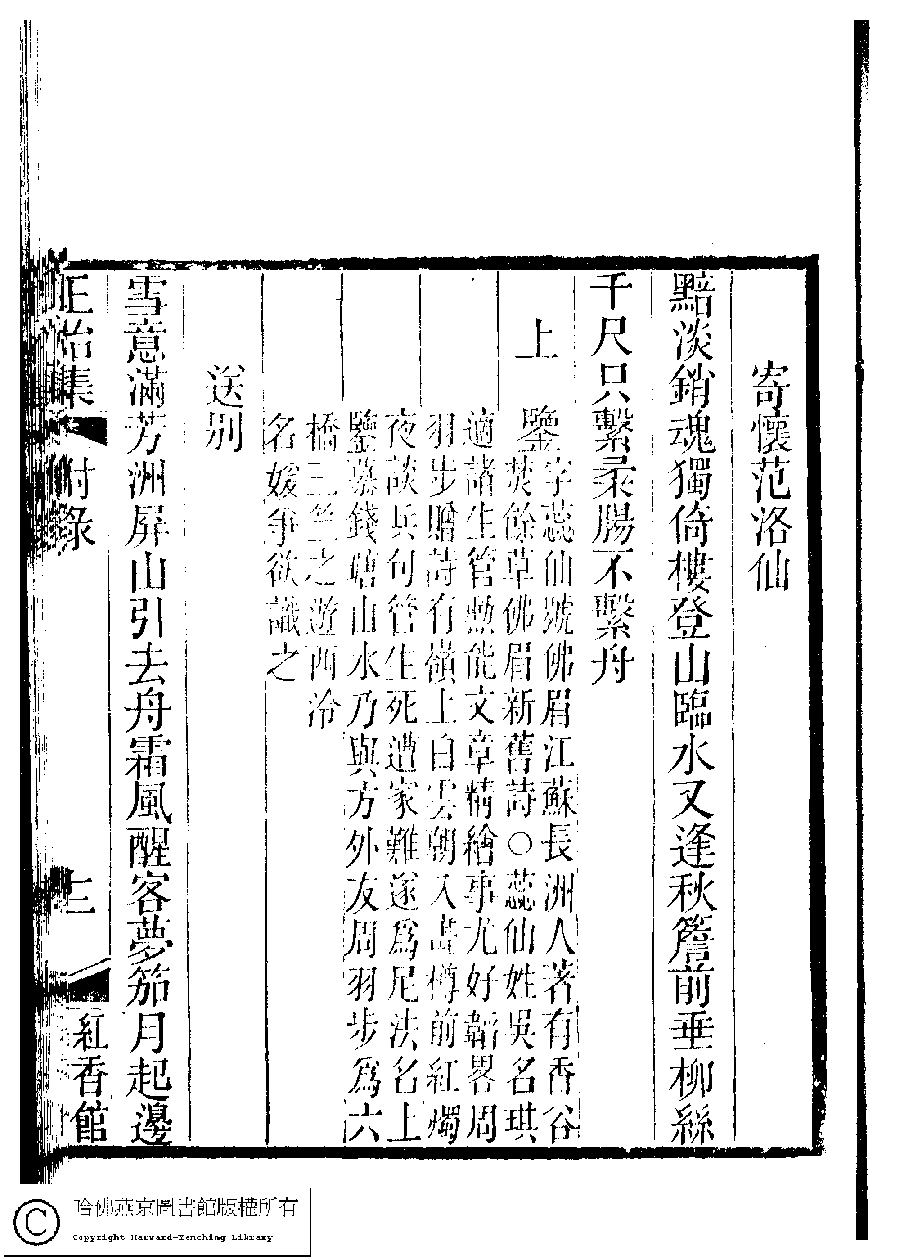 寄懷范洛仙
黯淡銷魂獨倚樓登山臨水又逢秋簷前垂柳絲
千尺只繫柔腸不繫舟
上鑒
字蕊仙號佛眉江蘇長洲人著有香谷
焚餘草佛眉新舊詩○蕊仙姓吳名琪
適諸生管勲能文章精繪事尤好韜畧周
羽步贈詩有嶺上白雲朝入畵樽前紅燭
夜談兵句管生死遭家難遂為尼法名上
鑒慕錢塘山水乃與方外友周羽步為六
橋三竺之遊西泠
名媛爭欲識之
送別
雪意滿芳洲屏山引去舟霜風醒客夢笳月起邊
正始集
附錄
紅香館
哈佛燕京圖書館版權所有
Copyright Harvard-Yenching Library